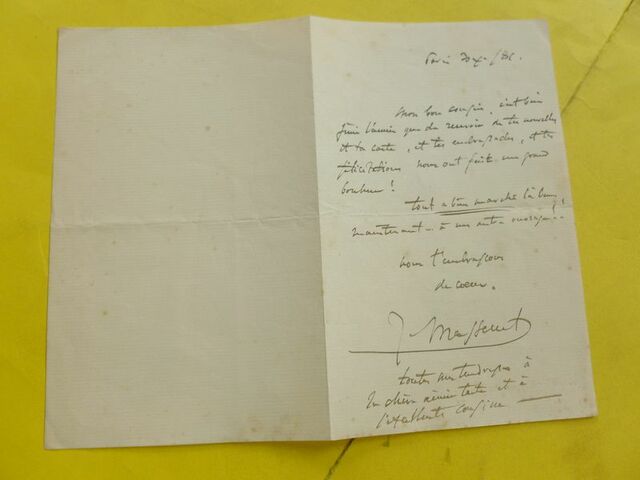 Paris
Mon bon cousin, c'est bien
finir l'année que de recevoir de tes nouvelles
et ta carte, et tes embrassades, et tes
félicitations nous ont fait un grand
bonheur!
tout a bien marché là bas
maintenant.. à un autre ouvrage!!
nous t'embrassons
de coeur.
J. Massenet
toutes mes tendresses à
la chère tante et à
l'excellente cousine